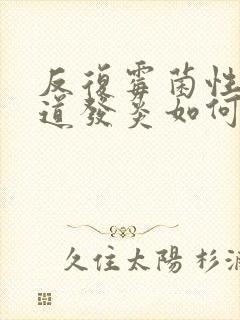 反復霉菌性
道發炎如何
久住太陽 杉浦